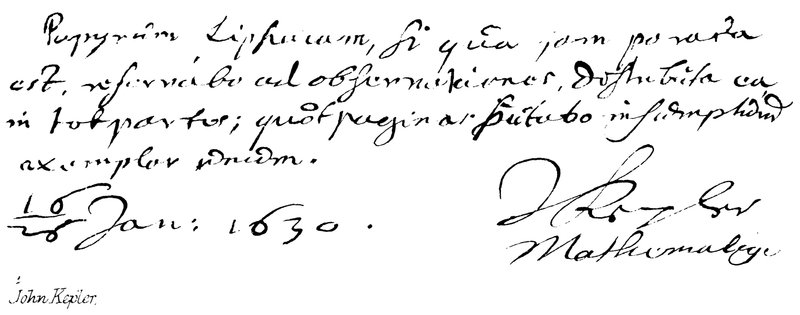 Papyrum Lipsicam, si qua jam parata
est, reservabo ad observationes, distributa ea
in tot partes; quot paginas putabo insumpturum
exemplar unum.
16/26 Jan: 1630.
J Kepler
Mathematicus
John Kepler.